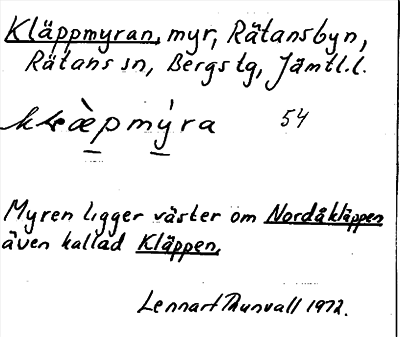 Kläppmyran, myr, Rätansbyn,
Rätans sn, Bergs tg, Jämtl.l.
54
Myren ligger väster om Nordåkläppen
även kallad Kläppen.
Lennart Thunvall 1972.